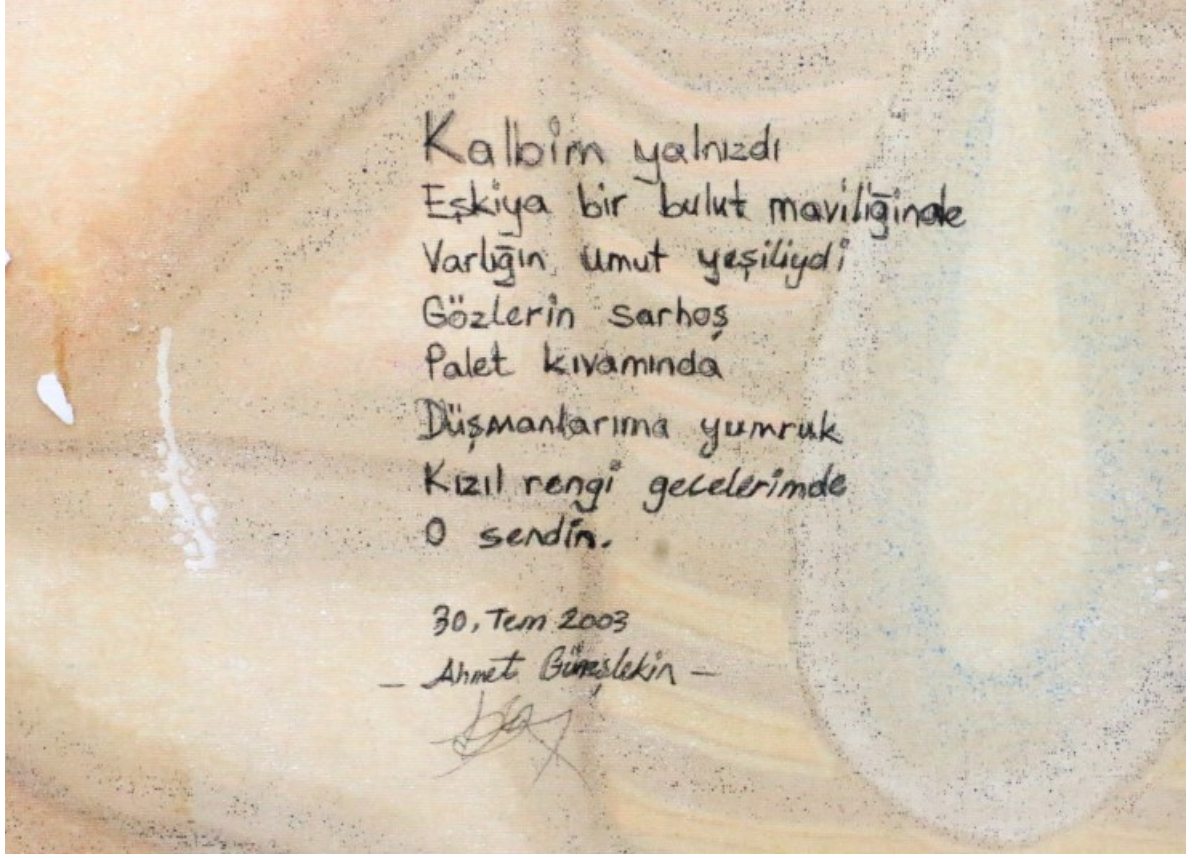 Kalbim yalnızdı
Eşkiya bir bulut maviliğinde
Varlığın umut yeşiliydi
Gözlerin sarhoş
Palet kıvamında
Düşmanlarıma yumruk
Kızıl rengi gecelerimde
O sendin.
30, Tem 2003
– Ahmet Güneştekin –